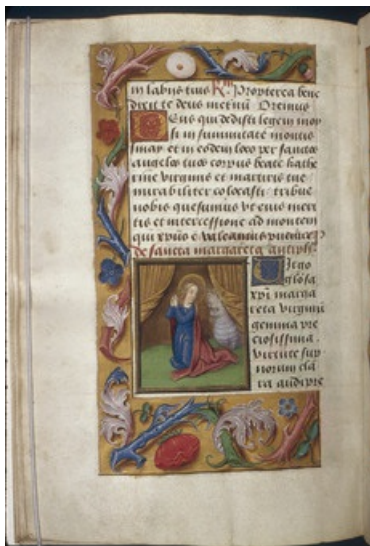 in labiis tuis R̃m Propterea bene
dixit te deus in eternũ Oremus
Deus qui dedisti legem moy
si in summitate montis
sinay et in eodem loco per sanctos
angelos tuos corpus beate kathe
rine virginis et martiris tue
mirabiliter colocasti tribue
nobis quesumus ut eius meri
tis et intercessione ad montem
qui xpus e valeamus
de sancta margareta antiph
Virgo
glosa
xpi marga
reta virginũ
gemma pre
ciosissima.
virtute sup
norum cla
ra audi pre